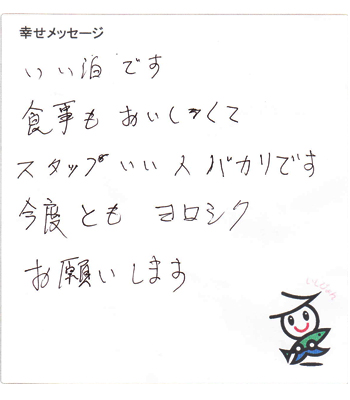 幸せメッセージ
いい泊です
食事もおいしくて
スタッフいい人バカリです
今度ともヨロシク
お願いします